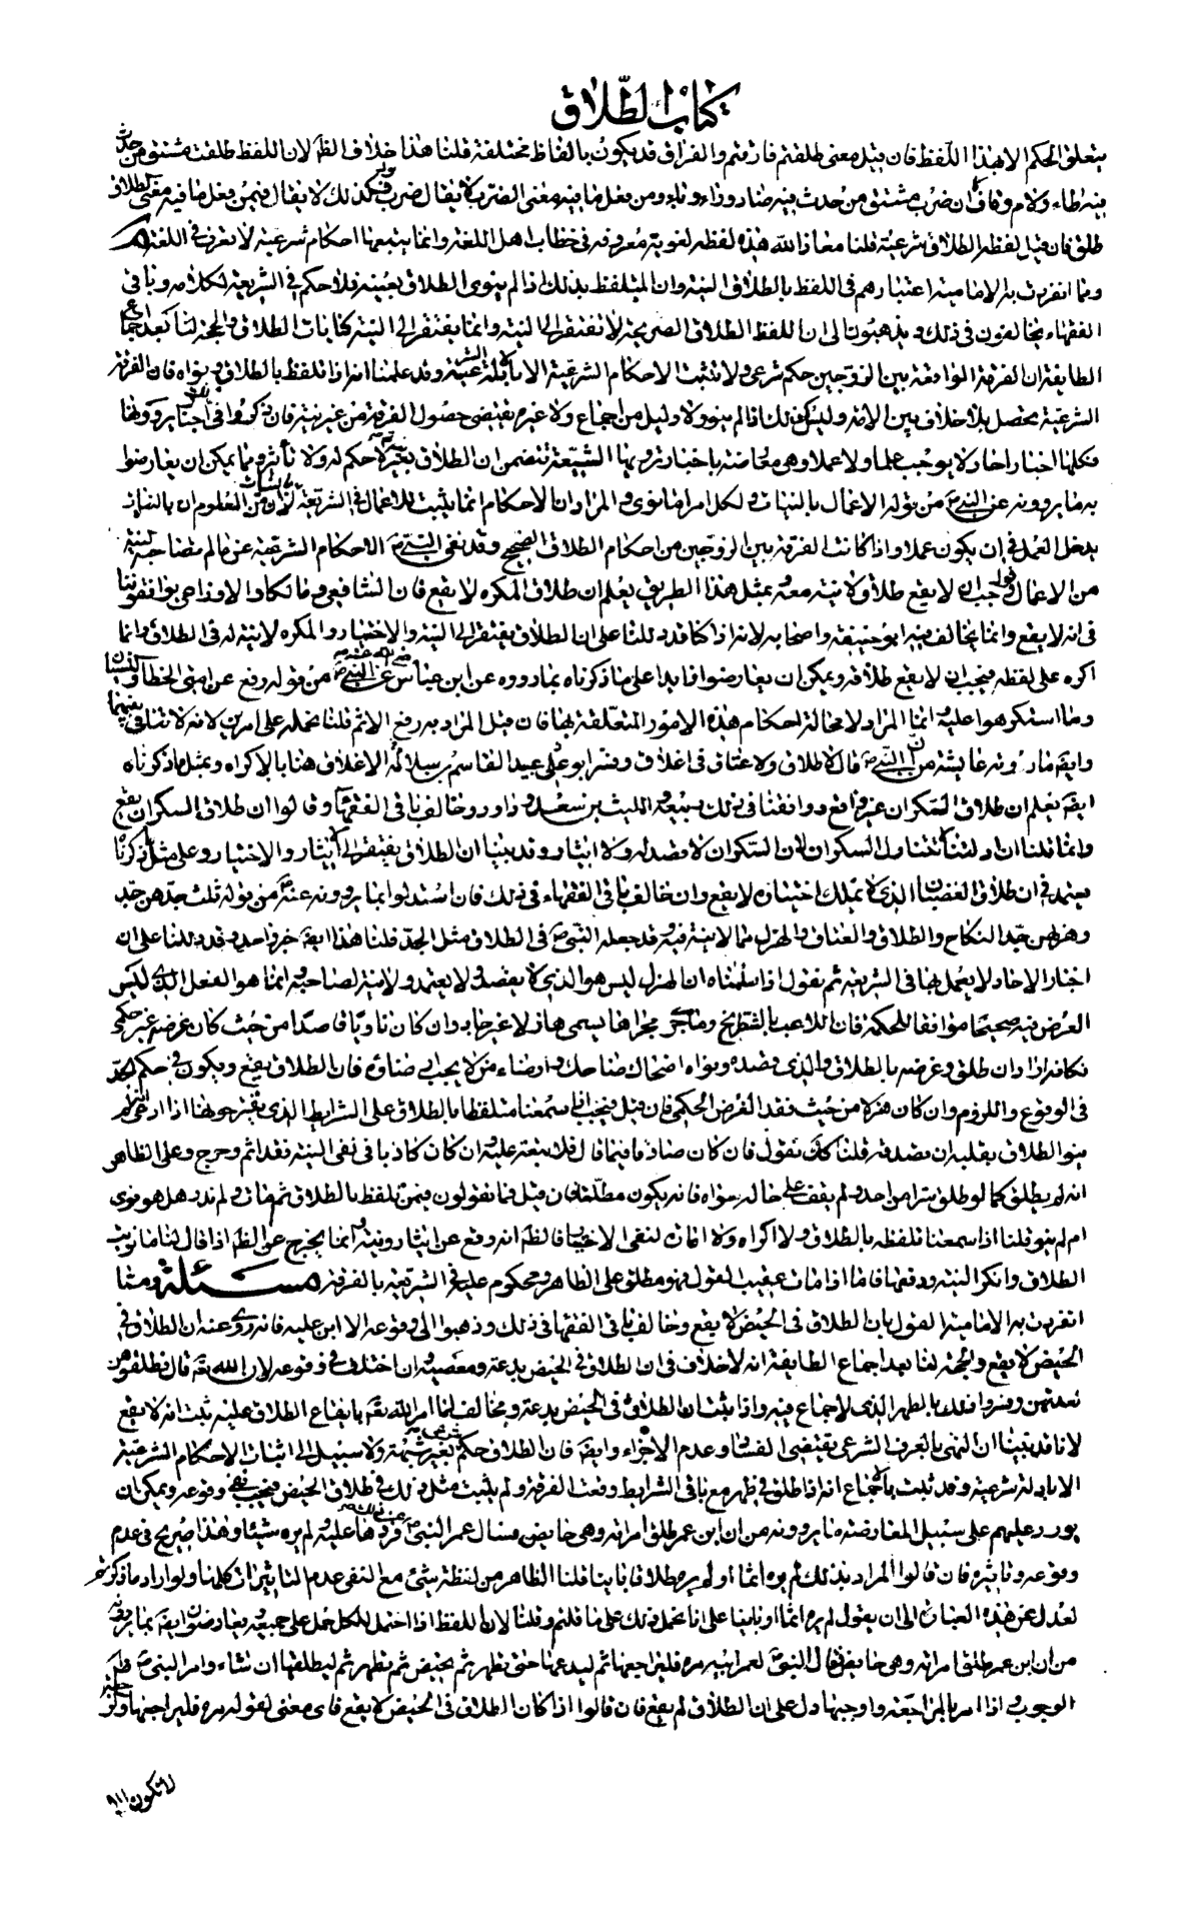 كتاب الطلاق
يتعلق الحكم الا بهذا اللفظ فان قيل معنى طلقتم فارقتم والفراق قد يكون بالفاظ مختلفة قلنا هذا خلاف الظ لان اللفظ طلقت مشتق من حدث
فيه طاء ولام وقاف كان ضرب مشتق من حدث فيه ضاد وراء وباء ومن فعل ما فيه معنى الضرب لا يقال ضرب فكذلك لا يقال فيمن فعل ما فيه معنى الطلاق
طلق فان قيل لفظة الطلاق شرعية قلنا معاذ الله هذه لفظة لغوية معروفة في خطاب اهل اللغة وانما يتبعها احكام شرعية لا تعرف في اللغة
ومما انفردت به الامامية اعتبارهم في اللفظ بالطلاق النية وان المتلفظ بذلك اذا لم ينوى الطلاق بعينه فلا حكم في الشريعة لكلامه وباقي
الفقهاء يخالفون في ذلك ويذهبون الى ان اللفظ الطلاق الصريح لا تفتقر الى النية وانما يفتقر الى النية كنايات الطلاق والحجة لنا بعد اجماع
الطايفة ان الفرقة الواقعة بين الزوجين حكم شرعى ولا تثبت الاحكام الشرعية الا بادلة شرعية وقد علمنا انه اذا تلفظ بالطلاق ونواه فان الفرقة
الشرعية تحصل بلا خلاف بين الامة وليس كذلك اذا لم ينو ولا دليل من اجماع ولا غيره يقتضى حصول الفرقة من غير نية فان ذكروا في ذلك اخبارا يروونها
فكلها اخبار احاد لا يوجب علما ولا عملا وهى معارضة باخبار ترويها الشيعة تتضمن ان الطلاق بغير نية لا حكم له ولا تأثير ومما يمكن ان يعارضوا
به ما يروونه عن النبي ص من قوله الاعمال بالنيات ولكل امرء ما نوى والمراد ان الاحكام انما يثبت للاعمال في الشريعة بالنيات لان من المعلوم ان بالنية لا
يدخل العمل في ان يكون عملا واذا كانت الفرقة بين الزوجين من احكام الطلاق الصحيح وقد نفى النبي ص الاحكام الشرعية عن ما لم تصاحبه النية
من الاعمال فواجب ان لا يقع طلاق لا نية معه وبمثل هذا الطريق يعلم ان طلاق المكره لا يقع فان الشافعي ومالكا والاوزاعي يوافقوننا
في انه لا يقع وانما يخالف فيه ابو حنيفة واصحابه لانه اذا كنا قد دللنا على ان الطلاق يفتقر الى النية والاختيار والمكره لا نية له في الطلاق وانما
اكره على لفظه فيجب ان لا يقع طلاقه ويمكن ان يعارضوا فايدا على ما ذكرناه بما رووه عن ابن عباس عن النبي ص من قوله رفع عن امتى الخطا والنسيان
وما استكرهوا عليه وانما المراد لا محالة احكام هذه الامور المتعلقة بها فان قيل المراد به رفع الاثم قلنا نحمله على امرين لانه لا تنافي بينهما
وايضا ما روته عايشة من ان النبي ص قال لا طلاق ولا عتاق في اغلاق وفسر ابو عبيد القاسم بن سلام الاغلاق هنا بالاكراه وبمثل ما ذكرناه
ايضا يعلم ان طلاق السكران غير واقع ووافقنا في ذلك ربيعة والليث بن سعد وداود وخالف باقي الفقهاء وقالوا ان طلاق السكران يقع
وانما قلنا ان ادلتنا تتناول السكران لان السكران لا قصد له ولا ايثار وقد بينا ان الطلاق يفتقر الى الايثار والاختيار وعلى مثل ما ذكرناه
يعتمد في ان طلاق الغضبان الذي لا يملك اختياره لا يقع وان خالف باقي الفقهاء في ذلك فان استدلوا بما يروونه عنه ص من قوله ثلث جدهن جد
وهزلهن جد النكاح والطلاق والعتاق والهزل مما لا نية فيه وقد جعله النبي ص في الطلاق مثل الجد قلنا هذا ايضا خبر واحد وقد دللنا على ان
اخبار الاحاد لا يعمل بها في الشريعة ثم نقول اذا سلمناه ان الهزل ليس هو الذي لا يقصد ولا يعتمد ولا نية لصاحبه وانما هو الفعل الذي ليس
الغرض فيه صحيحا موافقا للحكمة فان اللاعب بالشطرنج وما جرى مجراها يسمى هازلا غير جاد وان كان ناويا قاصدا من حيث كان غرضه غير حكمى
فكانه اراد ان طلق وغرضه بالطلاق والذي قصده ونواه اضحاك ضاحك وارضاء من لا يجب ارضاؤه فان الطلاق يقع ويكون في حكم الجد
في الوقوع واللزوم وان كان هزلا من حيث فقد الغرض الحكمى فان قيل فيجب اذا سمعنا متلفظا بالطلاق على الشرايط الذي يعتبرونها اذا ادعى انه لم
ينو الطلاق بقلبه ان يصدق قلنا كك نقول فان كان صادقا فيما قال فلا تبعة عليه وان كان كاذبا في نفى النية فقد اثم وحرج وعلى الظاهر
انه لم يطلق كما لو طلق سرا من احد ولم يقف على حاله سواه فانه يكون مطلقا فان قيل فما تقولون فيمن تلفظ بالطلاق ثم مات ولم ندر هل هو نوى
ام لم ينو قلنا اذا سمعنا تلفظه بالطلاق ولا اكراه ولا امارة لنفى الاختيار فالظ انه وقع عن ايثار ونية وانما يخرج عن الظ اذا قال لنا ما نويت
الطلاق وانكر النية ودفعها فاما اذا مات عقيب القول فهو مطلق على الظاهر ومحكوم عليه في الشريعة بالفرقة مسئلة ومما
انفردت به الامامية القول بان الطلاق في الحيض لا يقع وخالف باقي الفقهاء في ذلك وذهبوا الى وقوعه الا ابن علية فانه روى عنه ان الطلاق في
الحيض لا يقع والحجة لنا بعد اجماع الطايفة انه لا خلاف في ان الطلاق في الحيض بدعة ومعصية وان اختلف في وقوعه لان الله تعا قال فطلقوهن
لعدتهن وفسروا ذلك بالطهر الذي لا جماع فيه واذا ثبت ان الطلاق في الحيض بدعة ومخالف لما امر الله تعا بايقاع الطلاق عليه ثبت انه لا يقع
لانا قد بينا ان النهي بالعرف الشرعى يقتضى الفساد وعدم الاجزاء وايضا فان الطلاق حكم شرعى بغير شبهة ولا سبيل الى اثبات الاحكام الشرعية
الا بادلة شرعية وقد ثبت بالاجماع انه اذا طلق في طهر مع باقي الشرايط وقعت الفرقة ولم يثبت مثل ذلك في طلاق الحيض فيجب نفى وقوعه ويمكن ان
يورد عليهم على سبيل المعارضة ما يروونه من ان ابن عمر طلق امراته وهي حايض فسال عمر النبي ص عن ذلك فردها عليه ولم يره شيئا وهذا صريح في عدم
وقوعه وتاثيره فان قالوا المراد بذلك لم يره اثما او لم يره طلاقا باينا قلنا الظاهر من لفظة شئ مع النفى عدم التاثيرات كلها ولو اراد ما ذكرتم
لعدل عن هذه العبارة الى ان يقول لم يره اثما او باينا على انا نحمل ذلك على ما قلتم وقلنا لان اللفظ اذا احتمل للكل حمل على جميعه ويعارضون ايضا بما يروونه
من ان ابن عمر طلق امراته وهي حايض فقال النبي ص لعمر ابيه مره فليراجعها ثم ليدعها حتى تطهر ثم يحيض ثم تطهر ثم ليطلقها ان شاء وامر النبي ص ظاهره
الوجوب واذا امر بالمراجعة واوجبها دل على ان الطلاق لم يقع فان قالوا اذا كان الطلاق في الحيض لا يقع فاى معنى لقوله مره فليراجعها
لا تكون